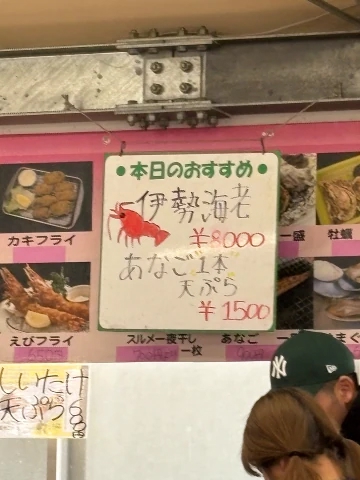 ●本日のおすすめ●
伊勢海老
￥8000
あなご1本
天ぷら
￥1500
カキフライ
一盛
牡蠣
えびフライ
スルメ一夜干し
一枚
あなご
しいたけ
天ぷら
NY